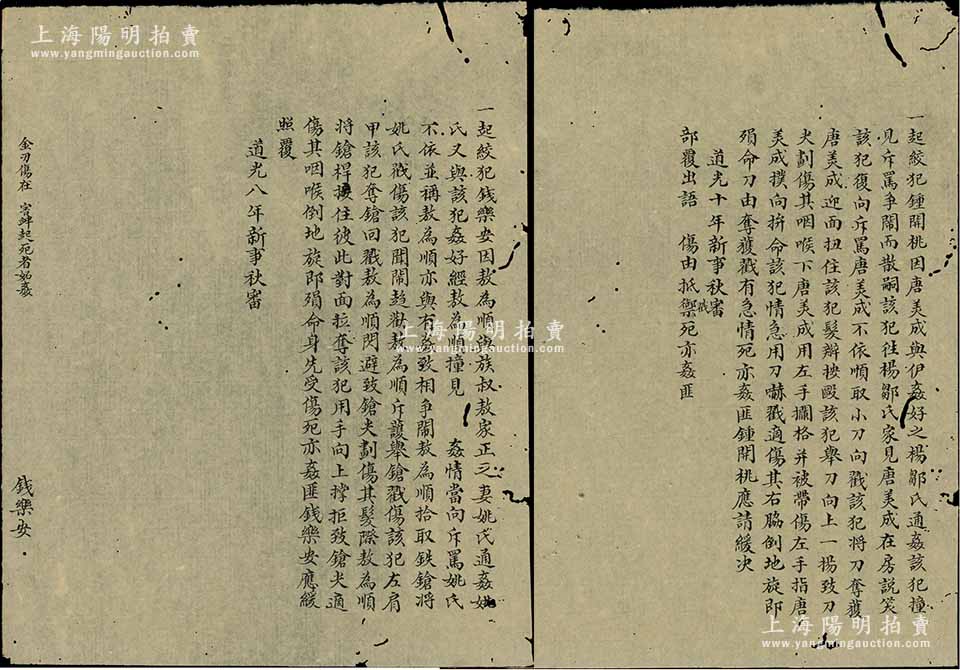 一起絞犯鍾開桃因唐美成與伊姦好之楊鄒氏通姦該犯撞
見斥罵爭鬧而散嗣該犯往楊鄒氏家見唐美成在房說笑
該犯復向斥罵唐美成不依順取小刀向戳該犯將刀奪獲
唐美成迎面扭住該犯髮辮按毆該犯舉刀向上一揚致刀
尖劃傷其咽喉下唐美成用左手攔格并被帶傷左手指唐
美成撲向拚命該犯情急用刀嚇戳適傷其右脇倒地旋即
殞命刀由奪獲戳有急情死亦姦匪鍾開桃應請緩决
道光十年新事秋審
部覆出語 傷由抵禦死亦姦匪
一起絞犯錢樂安因敖為順與族叔敖家正之妻姚氏通姦姚
氏又與該犯姦好經敖為順撞見 姦情當向斥罵姚氏
不依並稱敖為順亦與有姦致相爭鬧敖為順拾取鉄鎗將
姚氏戳傷該犯聞鬧趋勸敖為順斥護舉鎗戳傷該犯左肩
甲該犯奪鎗回戳敖為順閃避致鎗尖劃傷其髮際敖為順
將鎗桿接住彼此對面拉奪該犯用手向上撐拒致鎗尖適
傷其咽喉倒地旋即殞命身先受傷死亦姦匪錢樂安應緩
照覆
道光八年新事秋審
金刃傷在 死者如姦
錢樂安
上海陽明拍賣
www.yangmingauction.com
上海陽明拍賣
www.yangmingauction.com
上海陽明拍賣
www.yangmingauction.com
上海陽明拍賣
www.yangmingauction.com